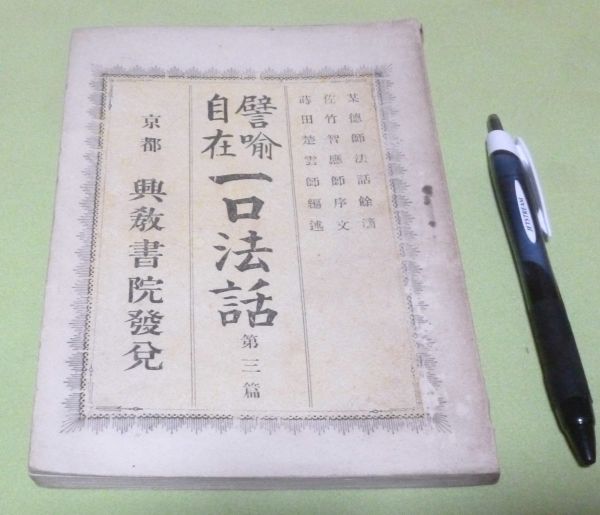 某德師法話餘滴
佐竹智應師序文
蒔田楚雲師編述
譬喩
自在
一口法話 第三篇
京都 興敎書院發兌
JETSTREAM